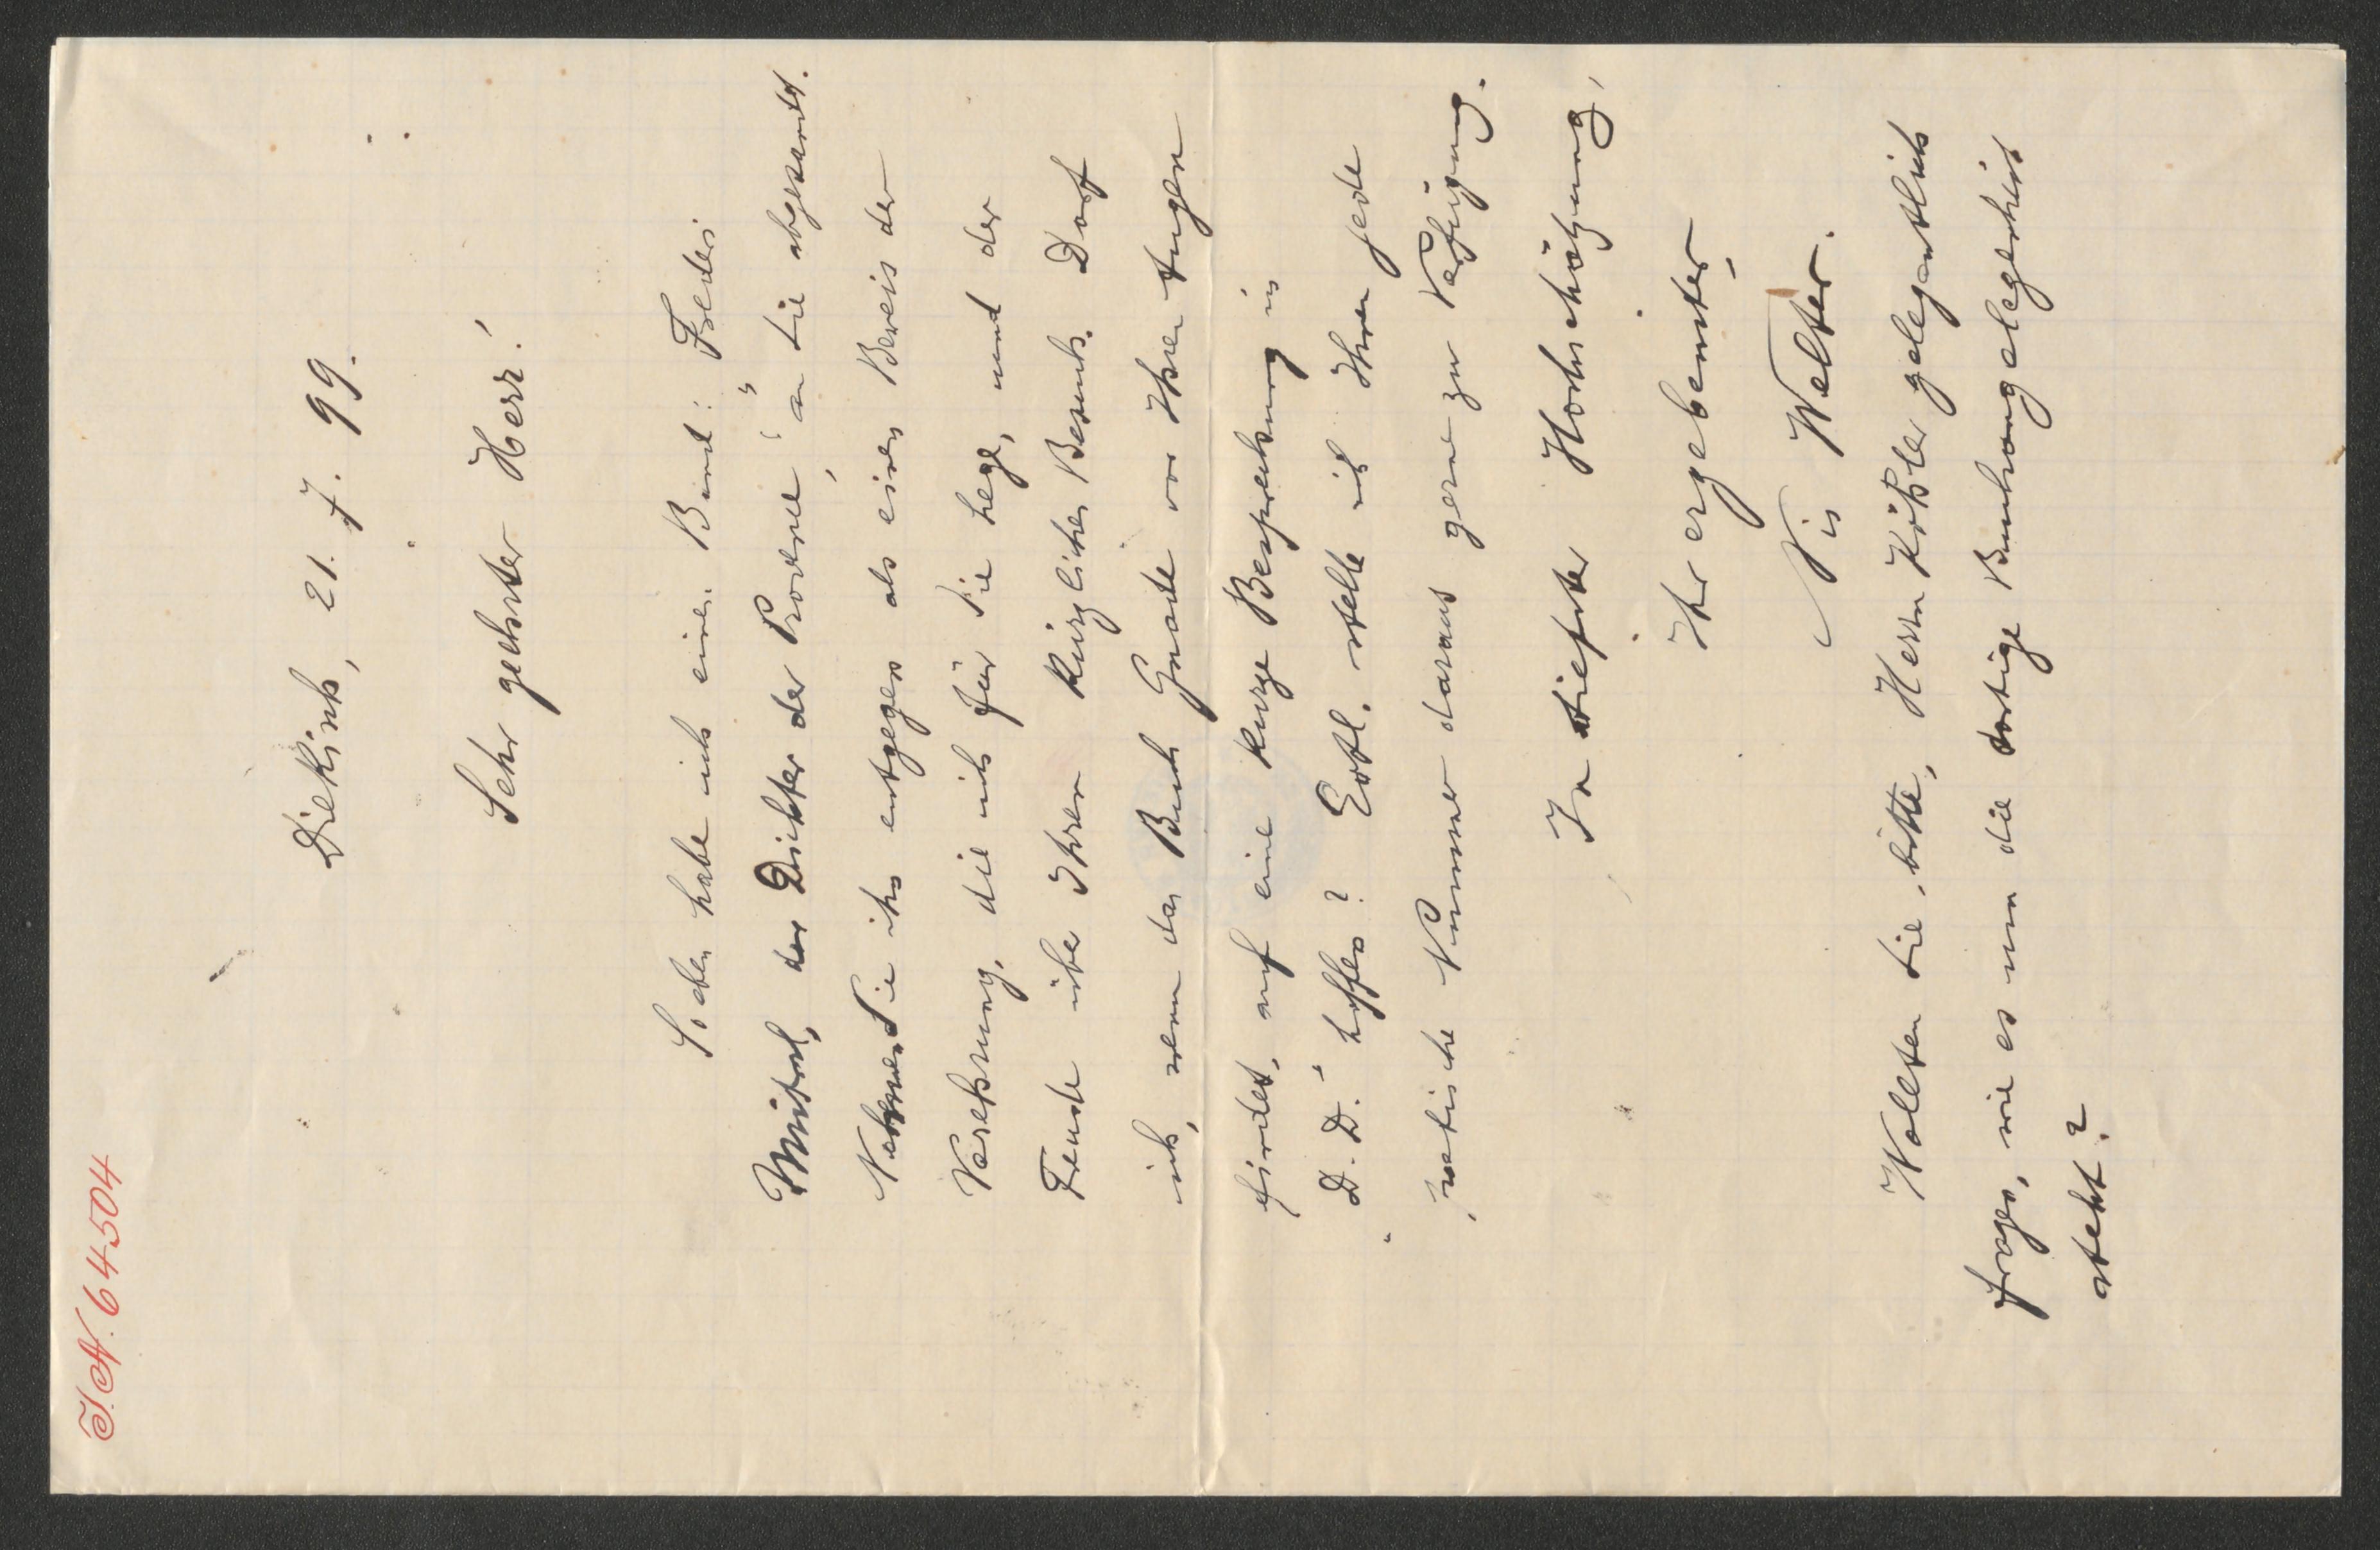 J.N. 64504
Diekirch, 21. 7. 99.
Sehr geehrter Herr!
Soeben habe ich einen Band: „Frederi
Mistral, der Dichter der Provence“, an Sie abgesandt.
Nehmen Sie ihn entgegen als einen Beweis der
Verehrung, die ich für Sie hege, und der
Freude über Ihren kürzlichen Besuch. Darf
ich, wenn das Buch Gnade vor Ihren Augen
findet, auf eine kurze Besprechung in
„D. D.“ hoffen? Evtl. stelle ich Ihnen jede
poetische Nummer daraus gerne zur Verfügung.
In tiefster Hochschätzung,
Ihr ergebenster,
Nis Welter.
Wollten Sie, bitte, Herrn Köhler gelegentlich
fragen, wie es um die dortige Buchangelegenheit
steht?